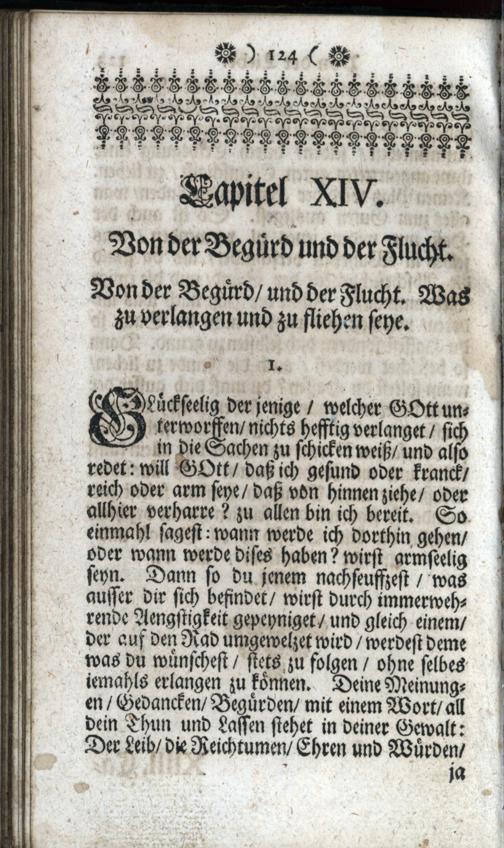 ) 124 (
Capitel XIV.
Von der Begürd und der Flucht.
Von der Begürd/ und der Flucht. Was
zu verlangen und zu fliehen seye.
1.
GLückseelig der jenige / welcher GOtt un-
terworffen/ nichts hefftig verlanget / sich
in die Sachen zu schicken weiß/ und also
redet: will GOtt/ daß ich gesund oder kranck/
reich oder arm seye/ daß von hinnen ziehe/ oder
allhier verharre? zu allen bin ich bereit. So
einmahl sagest: wann werde ich dorthin gehen/
oder wann werde dises haben? wirst armseelig
seyn. Dann so du jenem nachseuffzest / was
ausser dir sich befindet/ wirst durch immerweh-
rende Aengstigkeit gepeyniget/ und gleich einem/
der auf den Rad umgewelzet wird / werdest deme
was du wünschest / stets zu folgen / ohne selbes
iemahls erlangen zu können. Deine Meinung-
en/ Gedancken/ Begürden/ mit einem Wort/ all
dein Thun und Lassen stehet in deiner Gewalt:
Der Leib/ die Reichtumen/ Ehren und Würden/
ja